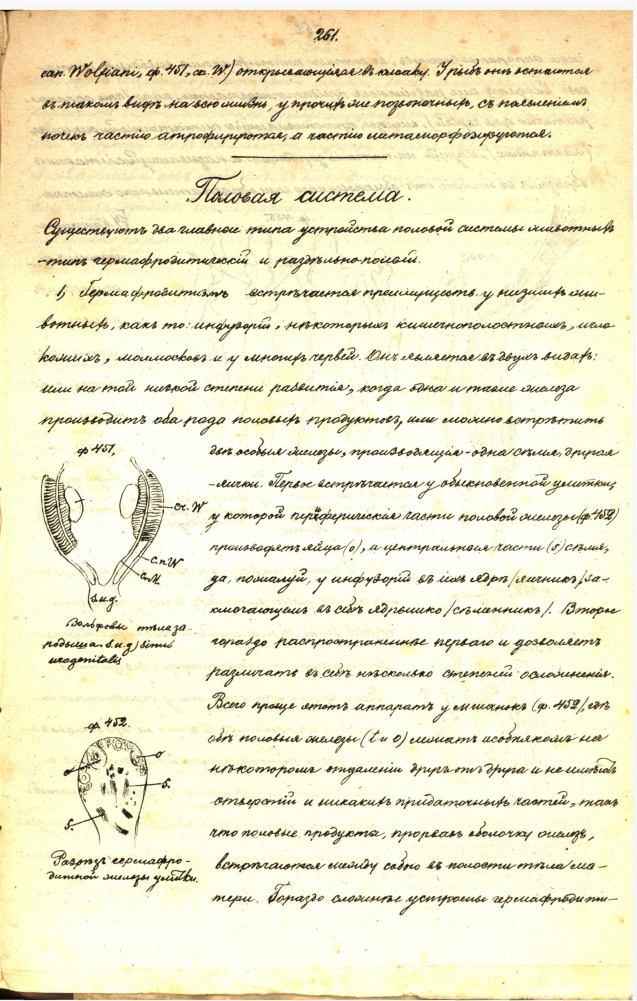 261.
can. Wolfiani, ф. 451, cн. W.) открывающiяся въ клоаку. У рыбъ онѣ остаются
въ такомъ видѣ на всю жизнь, у прочихъ же позвоночныхъ, съ появленiемъ
почекъ частiю атрофируются, а частiю метаморфозируются.
Половая система.
Существуютъ два главные типа устройства половой системы животныхъ
-типъ гермафродитическiй и раздѣльно-полой.
1) Гермафродитизмъ встрѣчается преимуществ. у низшихъ жи-
вотныхъ, какъ то: инфузорiй, нѣкоторыхъ кишечнополостныхъ,
моллюсковъ и у многихъ червей. Онъ является въ двухъ видахъ:
или на той низкой степени развитiя, когда одна и таже железа
производитъ оба рода половыхъ продуктовъ, или можно встрѣтить
двѣ особыя железы, производящiя - одна сѣмя, другая
-яички. Первое встрѣчается у обыкновенной улитки,
у которой периферическiя части половой железы (ф. 452)
производятъ яйца (о), а центральныя части (s) сѣмя,
да, пожалуй, у инфузорiй въ ихъ ядрѣ /яичник/ за-
ключающемъ въ себѣ ядрышко /сѣменникъ/. Второе
гораздо распространеннѣе перваго и дозволяетъ
различать въ себѣ нѣсколько степеней осложненiя.
Всего проще этотъ аппаратъ у мшанокъ (ф. 452), гдѣ
обѣ половыя железы (t и о) лежатъ особнякомъ на
нѣкоторомъ отдаленiи другъ отъ друга и не имѣютъ
отверстiй и никакихъ придаточныхъ частей, такъ
что половые продукта, прорвавъ оболочку железъ,
встрѣчаются между собою въ полости тѣла ма-
тери. Гораздо сложнѣе устроены гермафродити-
ф 451,
cн. W
c.п W
c.M.
s.u.g.
Вольфовы тѣла за-
родыша s.u.g) sinus
urogenitalis
ф 452.
o
o
s.
s.
Разрѣзъ гермафро-
дитной железы улитки.